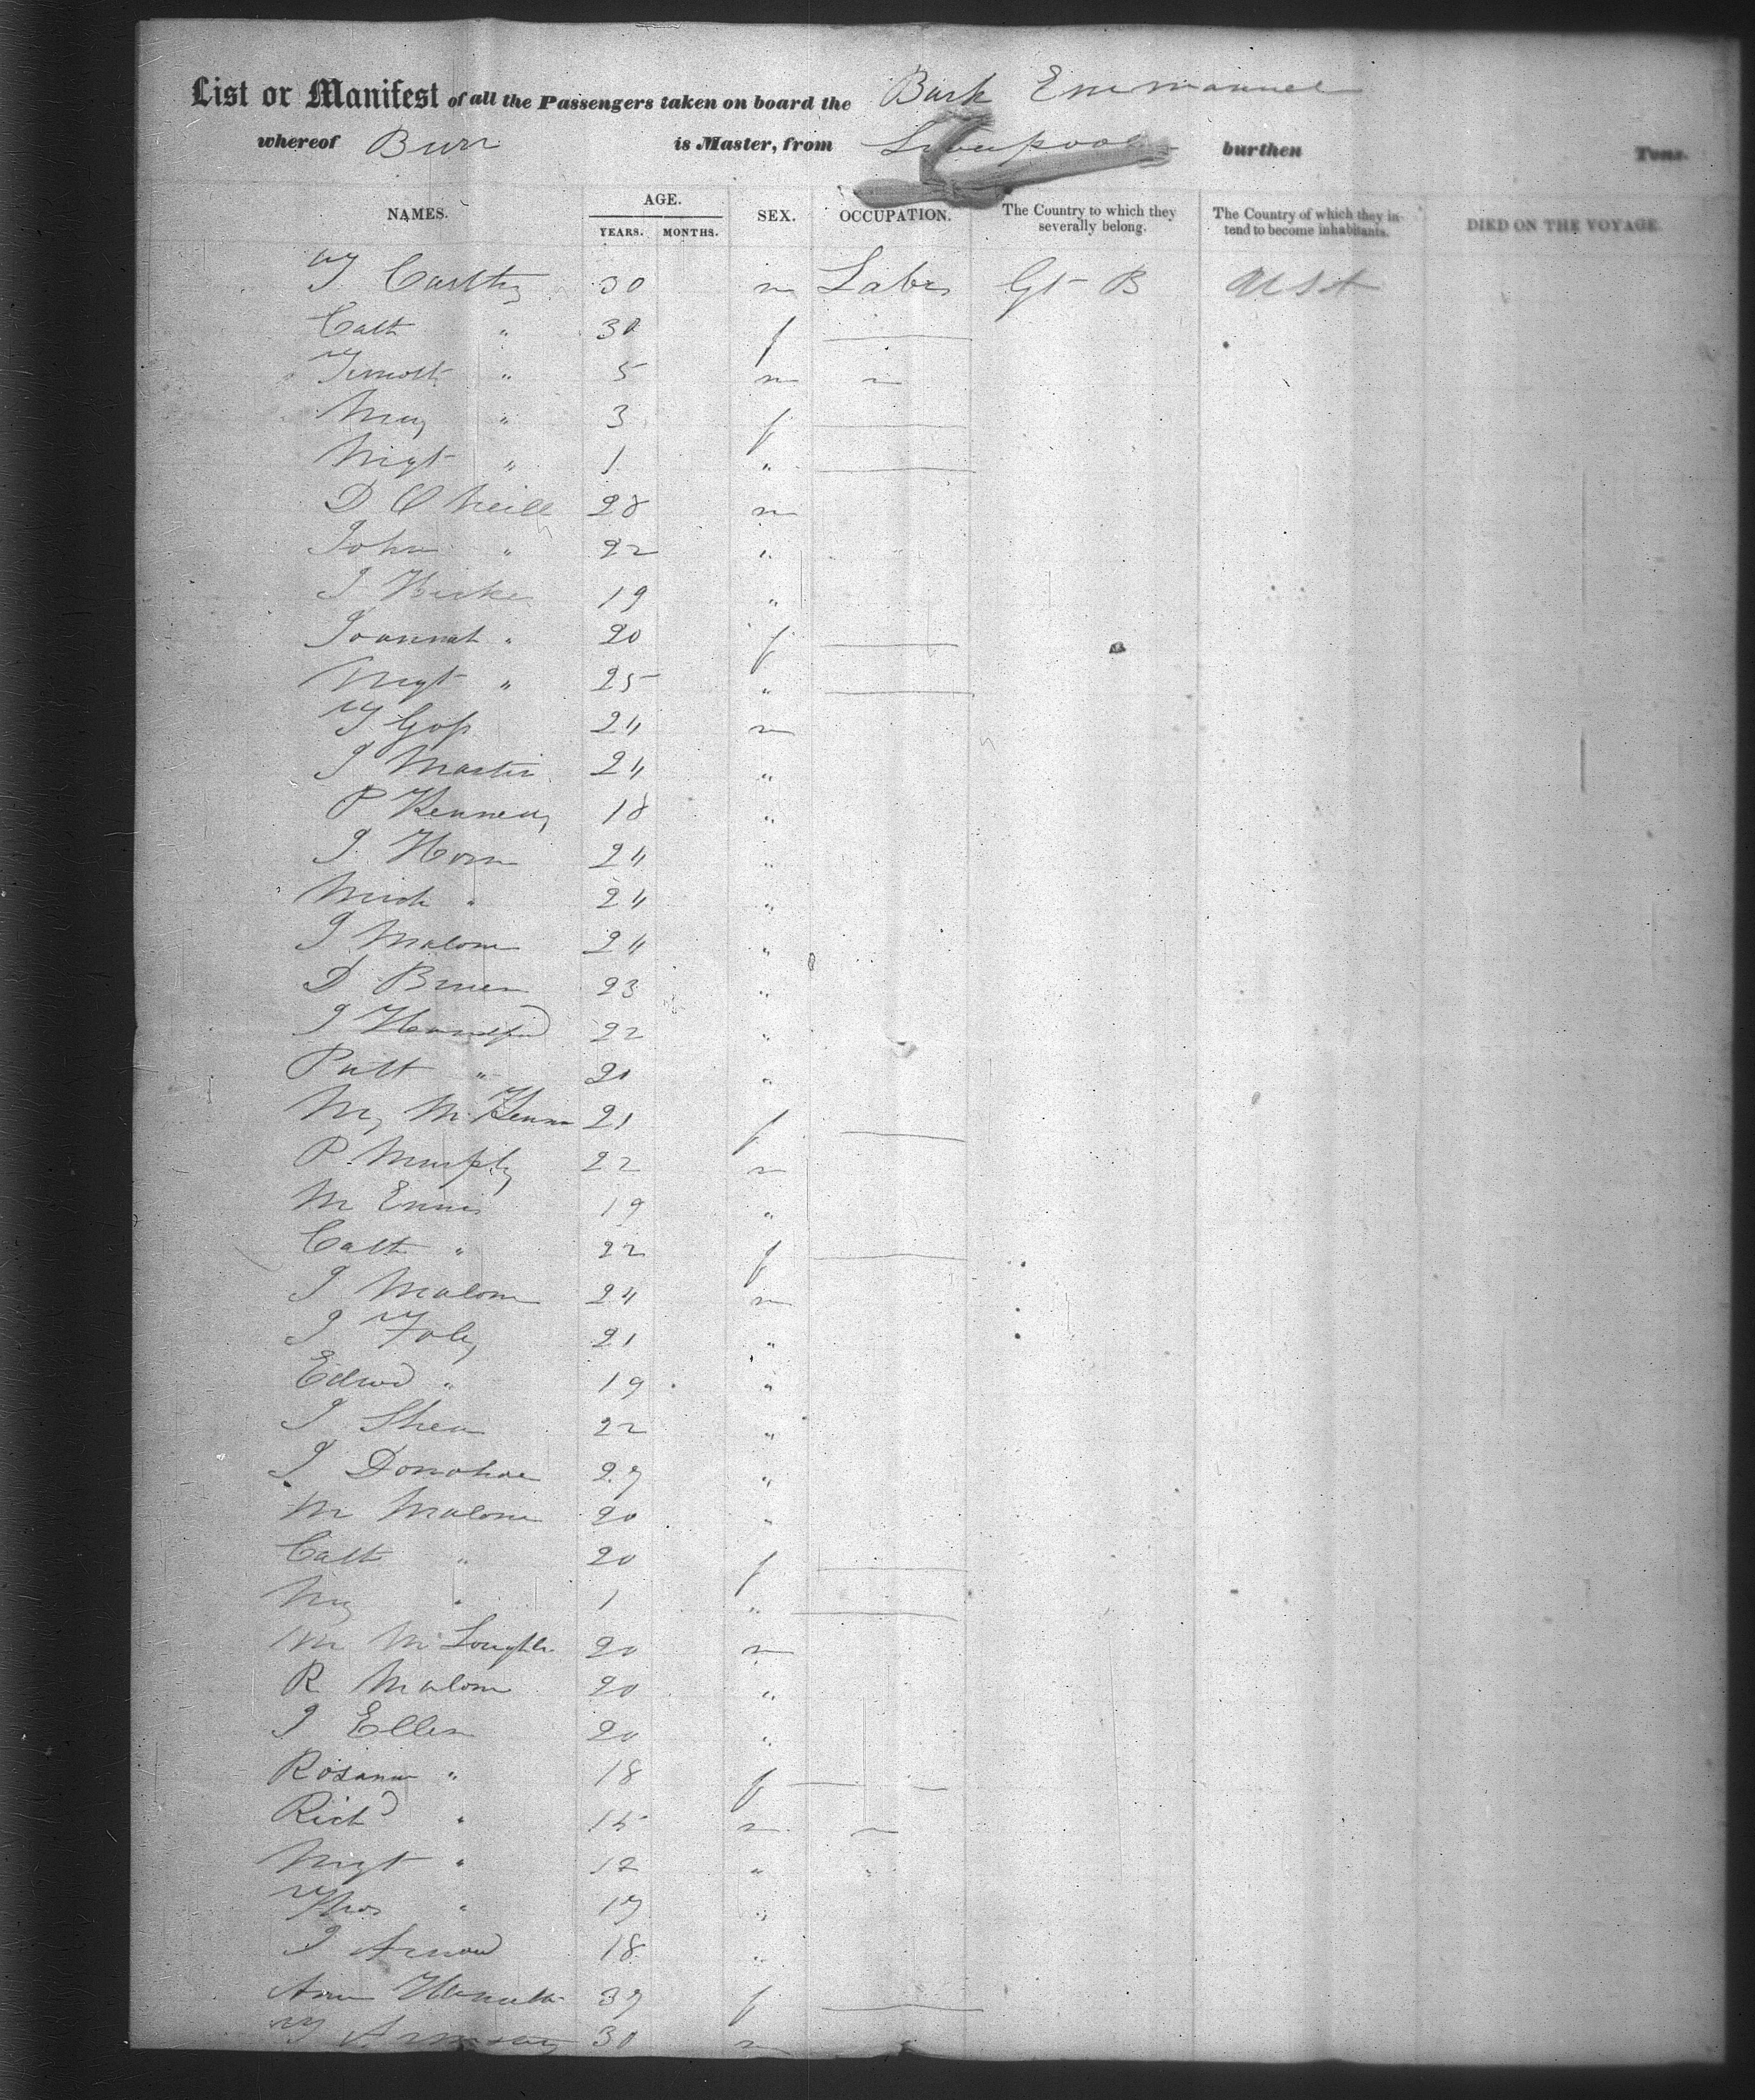 List or Manifest of all the Passengers taken on board the Bark Emmanuel
whereof Burr is Master, from Liverpool burthen Tons.
NAMES. AGE. YEARS. MONTHS. SEX. OCCUPATION. The Country to which they severally belong. The Country of which they intend to become inhabitants. DIED ON THE VOYAGE.
T 30 m Labr Gt B USA
Cath " 30 f
Timoth " 5 m
Mary " 3 f
Mgt " 1 "
D O Neill 28 m
John " 22 "
J 19 "
Joannah " 20 f
Mgt " 25 "
T Goss 24 m
J Martin 24 "
P Kennedy 18 "
J Horn 24 "
Mich " 24 "
J Malone 24 "
D 23 "
J 22 "
Patt " 21 "
My McKenna 21 f
P Murphy 22 m
M Ennis 19 "
Cath " 22 f
J Malone 24 m
J Foley 21 "
Edwd " 19 "
J Shea 22 "
J Donohoe 27 "
M Malone 20 "
Cath " 20 f
My " 1 "
M McLoughlin 20 m
R Malone 20 "
J Ellen 20 "
Rosanna " 18 f
Richd " 15 m
Mgt " 12 "
Thos " 17 "
J 18 "
Ann 37 f
T 30 m